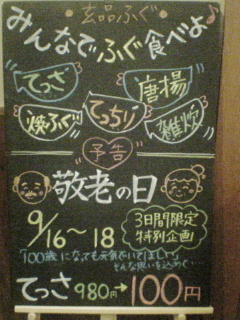 玄品ふぐ
みんなでふぐ食べよ♪
てっさ
唐揚
焼ふぐ
てっちり
雑炊
予告
敬老の日
9/16〜18
3日間限定
特別企画
「100歳になっても元気でいてほしい」
そんな思いを込めて…
てっさ 980円→100円